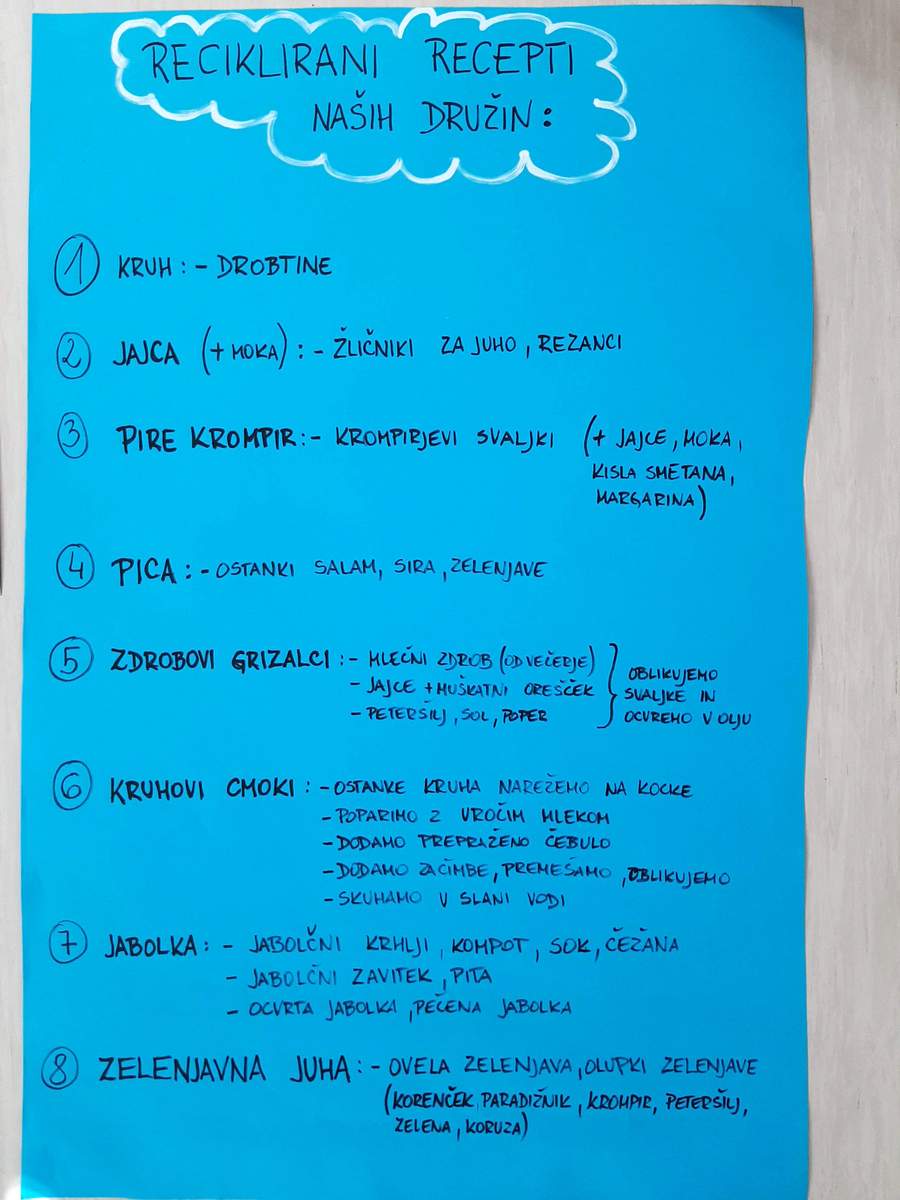 RECIKLIRANI RECEPTI
NAŠIH DRUŽIN:
1 KRUH: - DROBTINE
2 JAJCA (+ MOKA): - ŽLIČNIKI ZA JUHO, REZANCI
3 PIRE KROMPIR: - KROMPIRJEVI SVALJKI (+ JAJCE, MOKA,
KISLA SMETANA,
MARGARINA)
4 PICA: - OSTANKI SALAM, SIRA, ZELENJAVE
5 ZDROBOVI GRIZALCI: - MLEČNI ZDROB (OD VEČERJE)
- JAJCE + MUŠKATNI OREŠČEK
- PETERŠILJ, SOL, POPER
OBLIKUJEMO
SVALJKE IN
OCVREMO V OLJU
6 KRUHOVI CMOKI: - OSTANKE KRUHA NAREŽEMO NA KOCKE
- POPARIMO Z VROČIM MLEKOM
- DODAMO PREPRAŽENO ČEBULO
- DODAMO ZAČIMBE, PREMEŠAMO, OBLIKUJEMO
- SKUHAMO V SLANI VODI
7 JABOLKA: - JABOLČNI KRHLJI, KOMPOT, SOK, ČEŽANA
- JABOLČNI ZAVITEK, PITA
- OCVRTA JABOLKA, PEČENA JABOLKA
8 ZELENJAVNA JUHA: - OVELA ZELENJAVA, OLUPKI ZELENJAVE
(KORENČEK, PARADIŽNIK, KROMPIR, PETERŠILJ,
ZELENA, KORUZA)